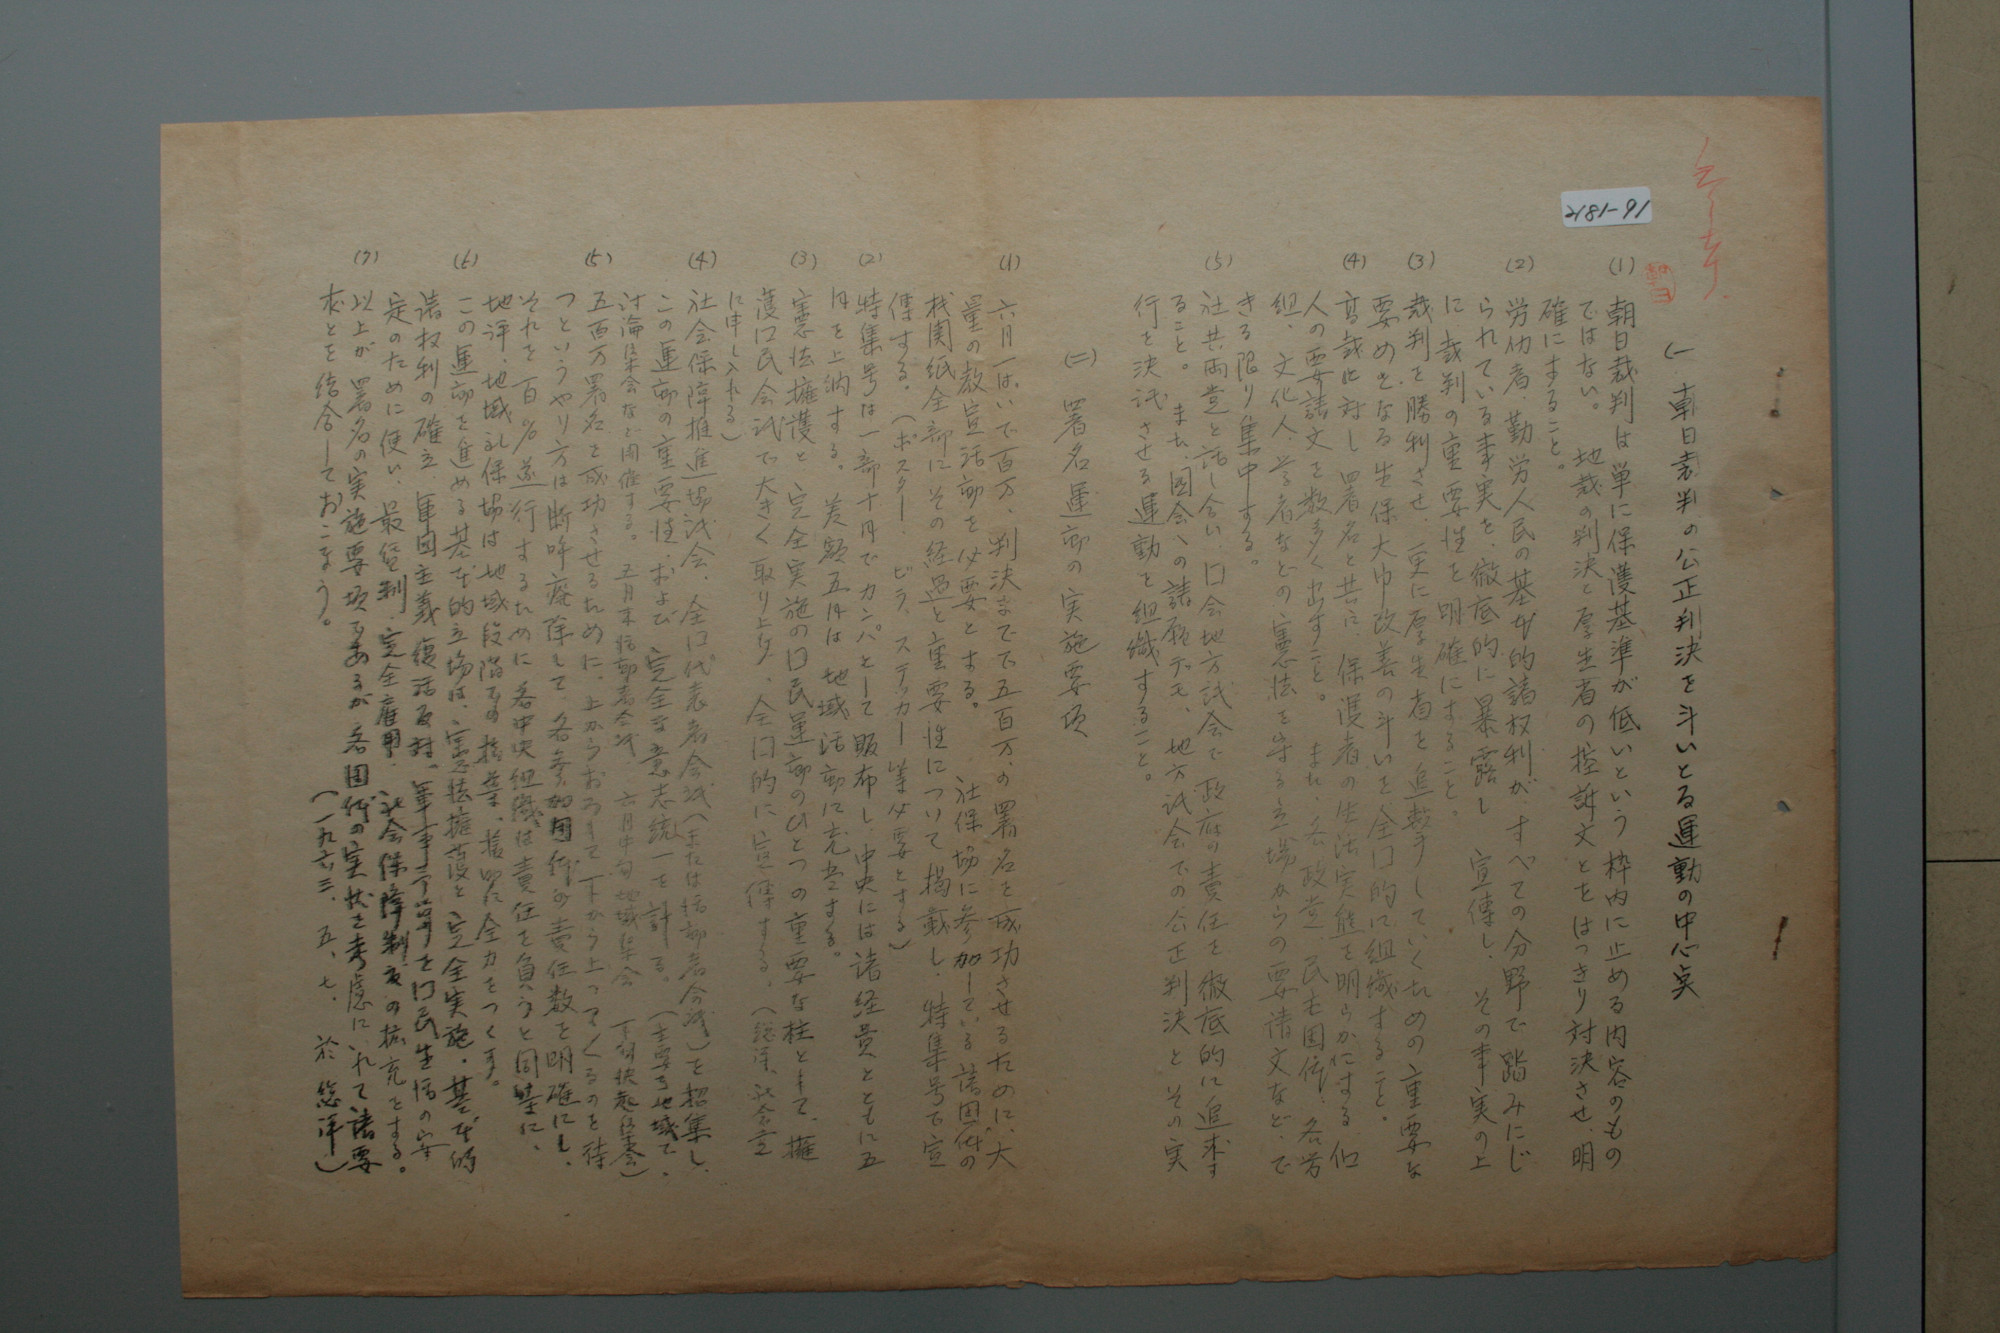 2181-91
(一、朝日裁判の公正判決を斗いとる運動の中心点
(1) 朝日裁判は単に保護基準が低いという枠内に止める内容のもの
ではない。地裁の判決と厚生省の控訴文とをはっきり対決させ、明
確にすること。
(2) 労仂者、勤労人民の基本的諸权利が、すべての分野で踏みにじ
られている事実を、徹底的に暴露し、宣傳し、その事実の上
に、裁判の重要性を明確にすること。
(3) 裁判を勝利させ、更に厚生省を追撃していくための重要な
要めとなる生保大巾改善の斗いを全口的に組織すること。
(4) 高裁に対し署名と共に、保護者の生活実態を明らかにする個
人の要請文を数多く出すこと。また、各政党、民主団体、各労
組、文化人、学者などの、憲法を守る立場からの要請文など、で
きる限り集中する。
(5) 社共両党と話し合い、口会地方議会で政府の責任を徹底的に追求す
ること。また、國会への請願デモ、地方議会での公正判決とその実
行を決議させる運動を組織すること。
(二) 署名運動の実施要項
(1) 六月一ぱいで百万、判決までで五百万、の署名を成功させるために、大
量の教宣活動を必要とする。社保協に参加している諸団体の
機関紙全部にその経過と重要性について掲載し、特集号で宣
傳する。(ポスター、ビラ、ステッカー等必要とする)
(2) 特集号は一部十円でカンパとして販布し、中央には諸経費とともに五
円を上納する。差額五円は地域活動に充当する。
(3) 憲法擁護と完全実施の口民運動のひとつの重要な柱として、擁
護口民会議で大きく取り上げ、全口的に宣傳する、(総評、社会党
に申し入れる)
(4) 社会保障推進協議会、全口代表者会議(または活動者会議)を招集し、
この運動の重要性、および完全な意志統一を計る。(主要な地域で、
討論集会など開催する。五月末活動者会議、六月中旬地域集会 下旬決起集会)
(5) 五百万署名を成功させるために、上からおろして下から上ってくるのを待
つというやり方は断呼廃除して、各参加団体の責任数を明確にし、
それを百%遂行するために各中央組織は責任を負うと同時に、
地評、地域社保協は地域段階での指導、援助に全力をつくす。
(6) この運動を進める基本的立場は、憲法擁護と完全実施。基本的
諸权利の確立、軍国主義復活反対。軍事予算を口民生活の安
定のために使い、最賃制、完全雇用、社会保障制度の拡充とする。
(7) 以上が署名の実施要項であるが各団体の実状を考慮に入れて諸要
求とを結合しておこなう。
(一九六三、五、七、於 総評)